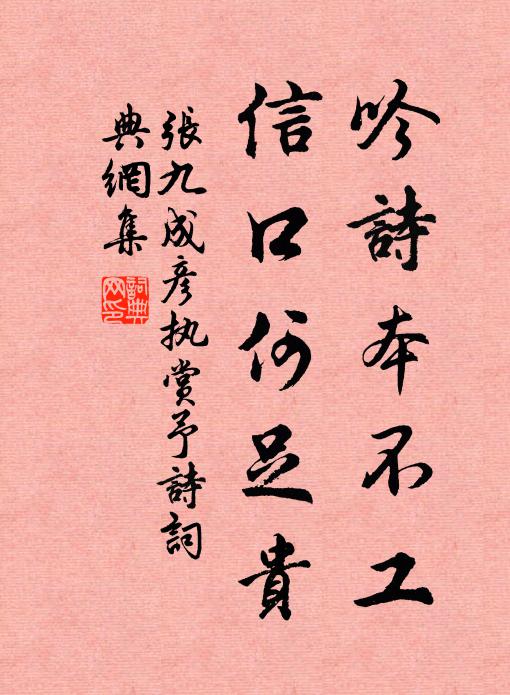 吟詩本不工
信口何足貴
張九成彦执賞予詩詞
典網集
詞典
网印